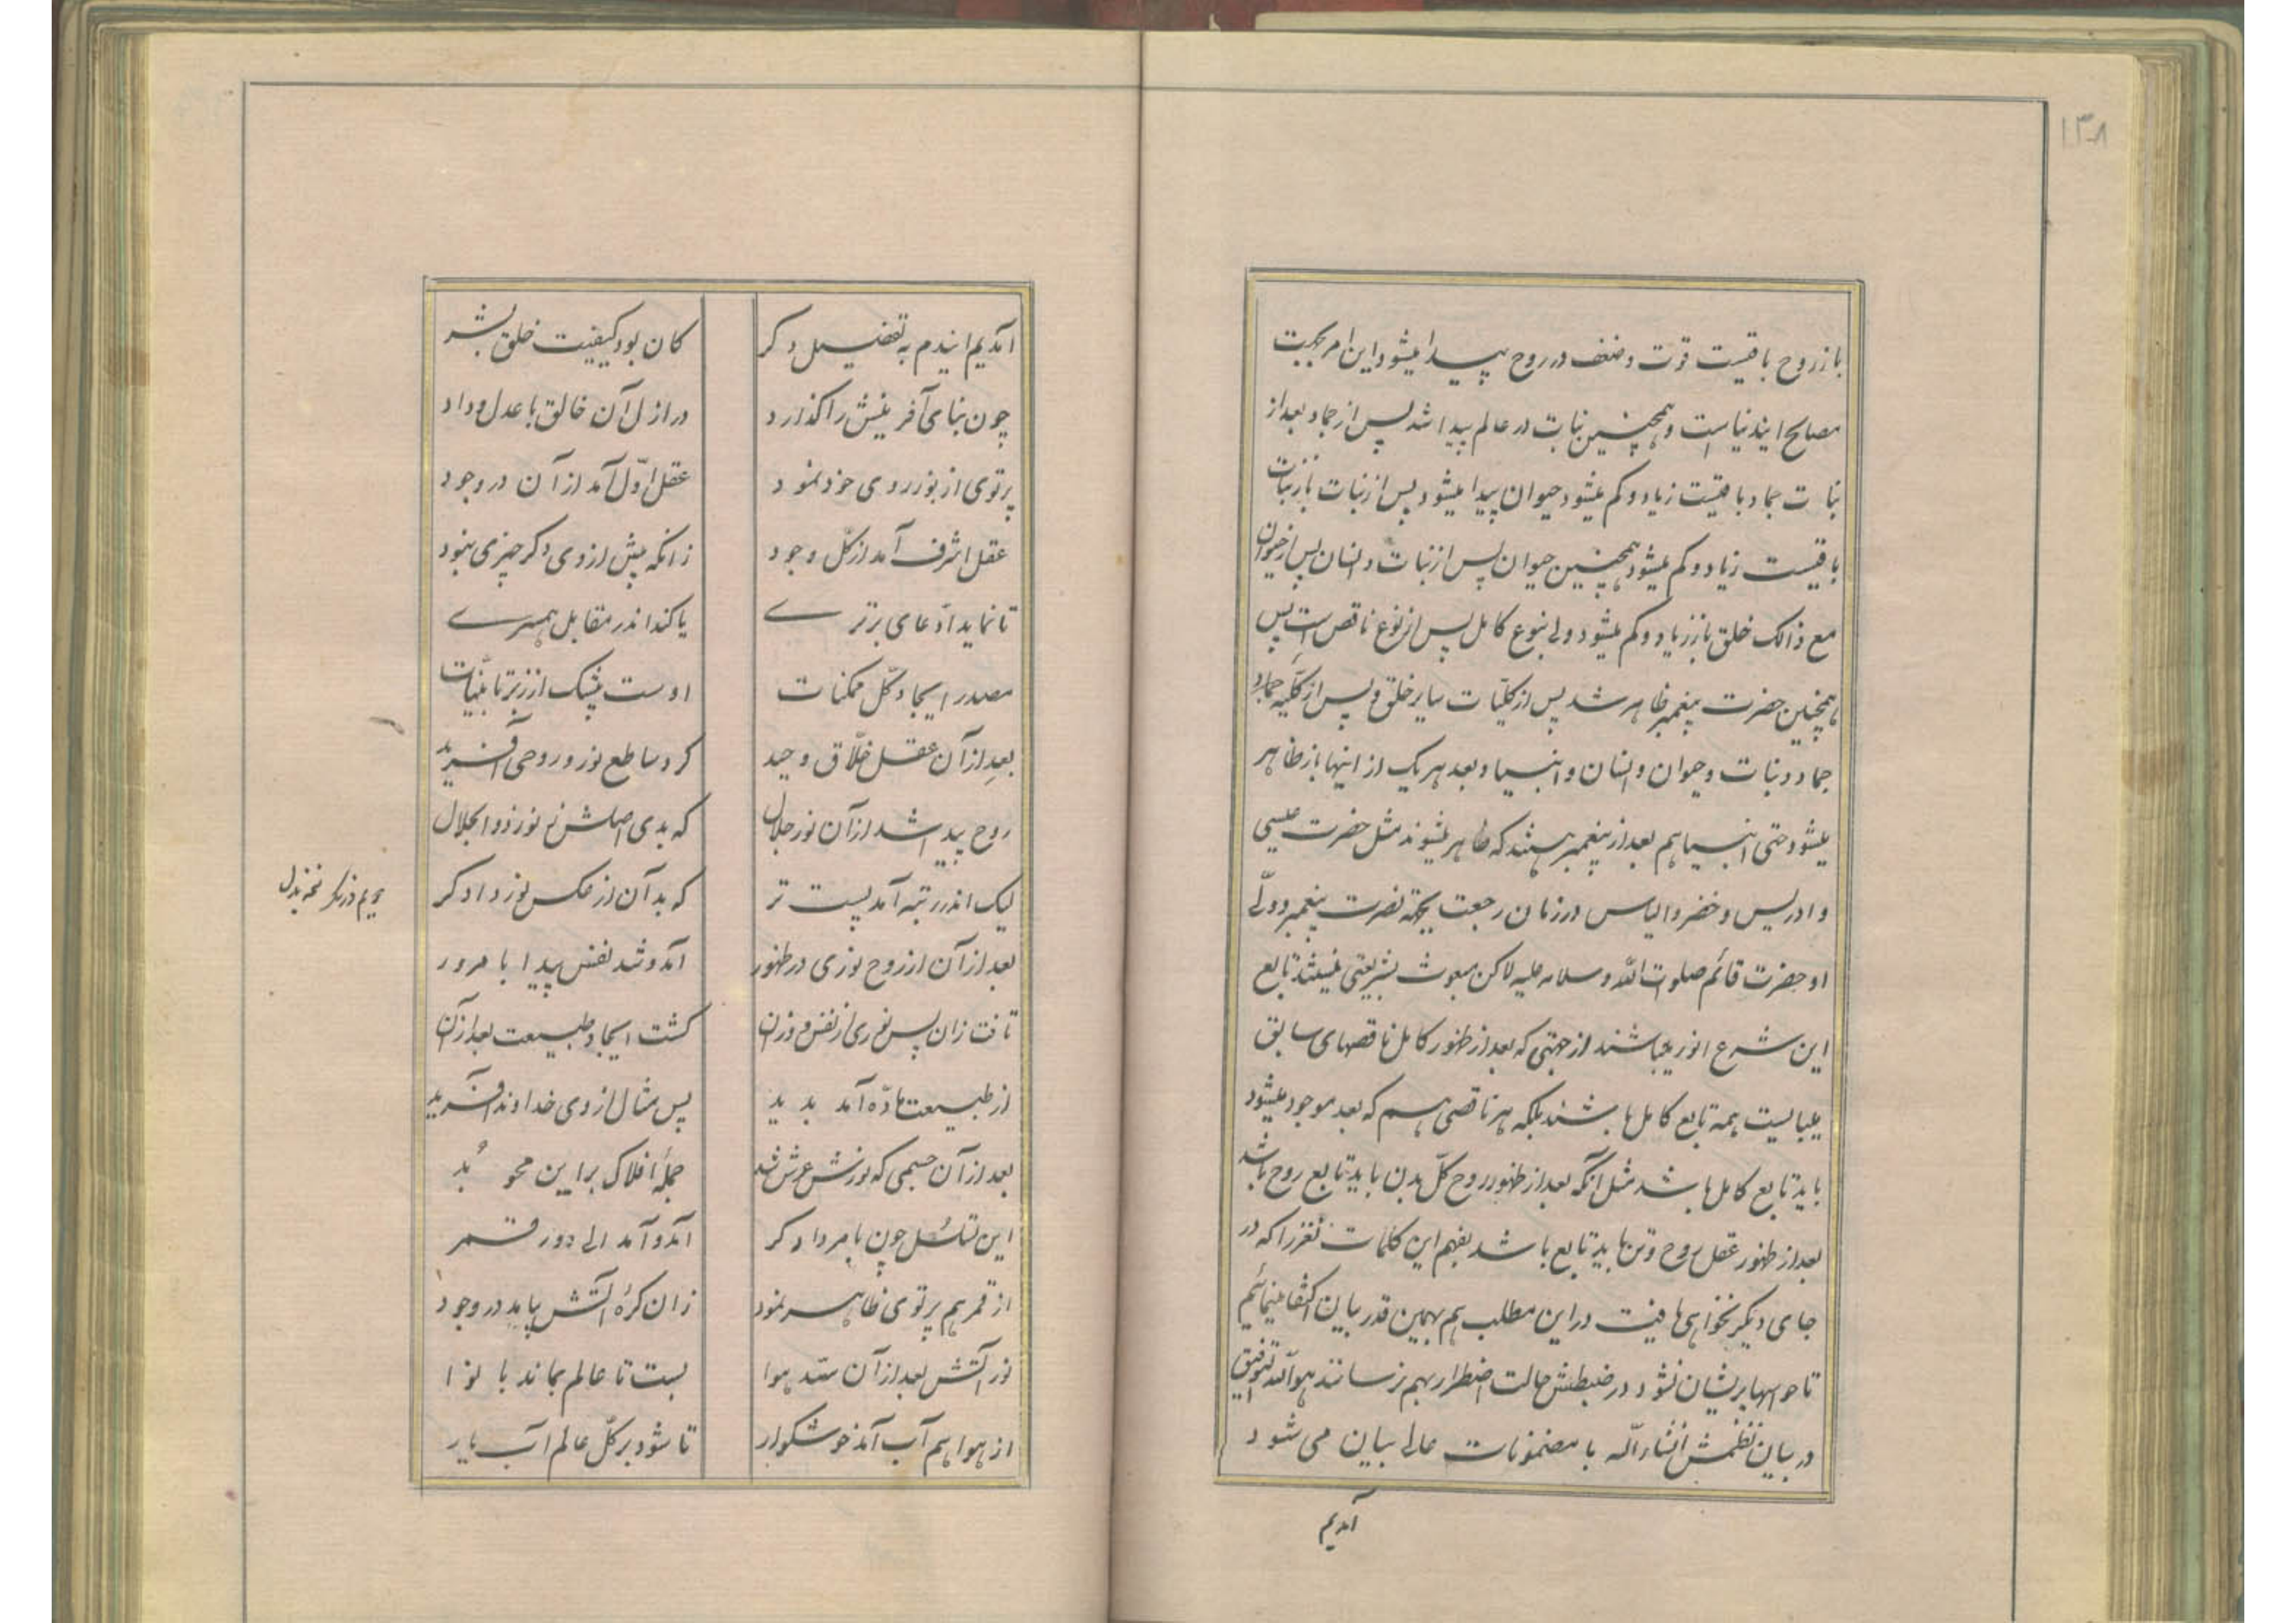 ۱۳۸
باز روح باقیست قوت و ضعف در روح پیدا میشود این امر بجهت
مصالح ایندنیاست و همچنین نبات در عالم پیدا شد پس از جماد بعد از
نبات جماد باقیست زیاد و کم میشود حیوان پیدا میشود پس از نبات باز نبات
باقیست زیاد و کم میشود همچنین حیوان پس از نبات و انسان پس از حیوان
مع ذالک خلق باز زیاد و کم میشود ولی نوع کامل پس از نوع ناقص است پس
همچنین حضرت پیغمبر ظاهر شد پس از کلیات سایر خلق و پس از کلیه جماد
جماد و نبات و حیوان و انسان و انبیا و بعد هر یک از اینها باز ظاهر
میشود حتی انبیا هم بعد از پیغمبر هستند که ظاهر میشوند مثل حضرت عیسی
و ادریس و خضر و الیاس در زمان رجعت بجهة نصرت پیغمبر و ولی
او حضرت قائم صلوت الله و سلامه علیه لاکن مبعوث بشریعتی نیستند تابع
این شرع انور میباشند از جهتی که بعد از ظهور کامل ناقصهای سابق
میبایست همه تابع کامل باشند بلکه هر ناقصی هم که بعد موجود میشود
باید تابع کامل باشد مثل آنکه بعد از ظهور روح کل بدن باید تابع روح باشد
بعد از ظهور عقل روح و تن باید تابع باشد بفهم این کلمات نغز را که در
جای دیگر نخواهی یافت در این مطلب هم بهمین قدر بیان اکتفا مینمائیم
تا حواسها پریشان نشود و در ضبطش حالت اضطرار بهم نرسانند هو الله توفیق
در بیان نظمش انشاء الله با مضمونات عالی بیان می شود
آمدیم
آمدیم ایندم به تفضیل دکر کان بود کیفیت خلق بشر
چون بنای آفرینش را کذارد در ازل آن خالق با عدل و داد
پرتوی از نور روی خود نمود عقل اوّل آمد از آن در وجود
عقل اشرف آمد از کلّ وجود زانکه پیش از وی دکر چیزی نبود
تا نماید ادّعای برتری یا کند اندر مقابل همسری
مصدر ایجاد کلّ ممکنات اوست بیشک از زبر تا بیّنات
بعد از آن عقل خلّاق وحید کرد ساطع نور و روحی آفرید
روح پیدا شد از آن نور جلال که بدی اصلش ز نور ذو الجلال
لیک اندر رتبه آمد پست تر که بد آن از عکس نور دادکر
نسخه بدل
بعد از آن از روح نوری در ظهور آمد و شد نفس پیدا با مرور
تافت زان پس نوری از نفس و زان کشت ایجاد طبیعت بعد از آن
از طبیعت مادّه آمد پدید پس مثال از وی خداوند آفرید
بعد از آن جسمی که نورش عرش شد جملهٔ افلاک بر این محو بُد
این تناسل چون بامر دادکر آمد و آمد الی دور قمر
از قمر هم پرتوی ظاهر نمود زان کرهٔ آتش بیامد در وجود
نور آتش بعد از آن سدّ هوا بست تا عالم بماند با نوا
از هوا هم آب آمد خوشکوار تا شود بر کلّ عالم آب یار